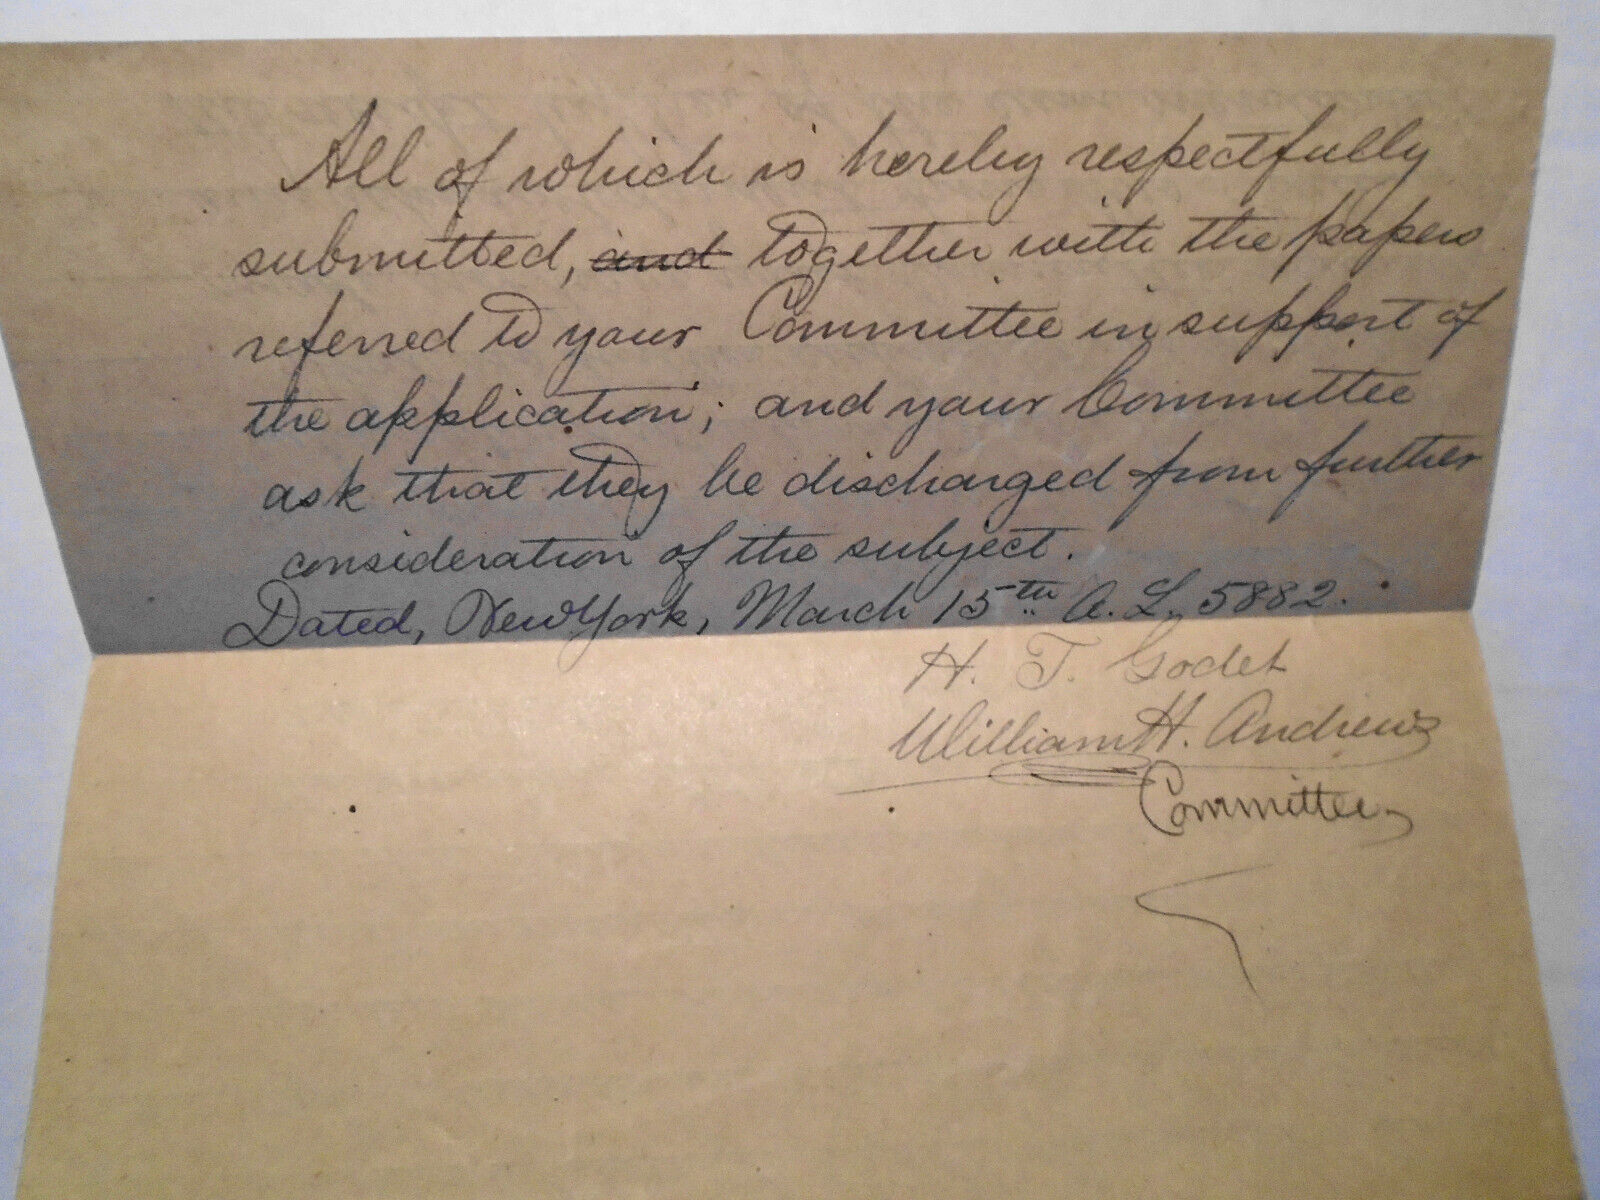 All of which is hereby respectfully
submitted, and together with the papers
referred to your Committee in support of
the application; and your Committee
ask that they be discharged from further
consideration of the subject.
Dated, New York, March 15th A. L. 5882.
H. T. Godet
William H. Andrews
Committee